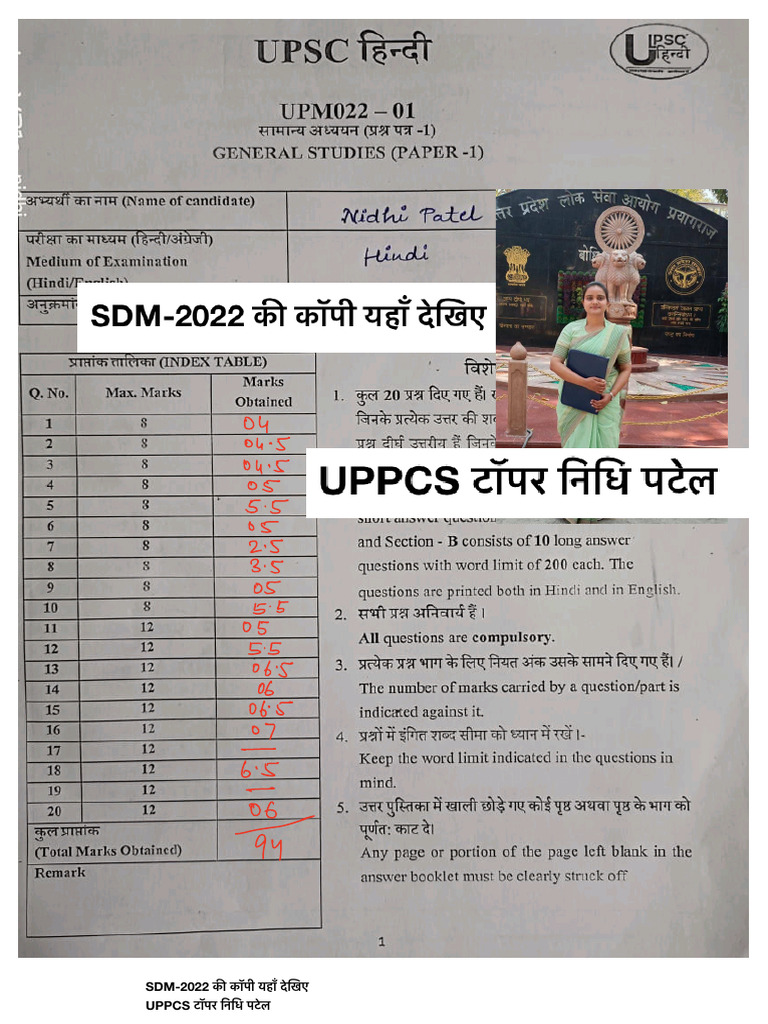 UPSC हिन्दी
UPSC
हिन्दी
UPM022 – 01
सामान्य अध्ययन (प्रश्न पत्र -1)
GENERAL STUDIES (PAPER -1)
अभ्यर्थी का नाम (Name of candidate)
Nidhi Patel
परीक्षा का माध्यम (हिन्दी/अंग्रेजी)
Medium of Examination
(Hindi/English)
Hindi
अनुक्रमां
त्तर प्रदेश लोक सेवा आयोग प्रयागराज
SDM-2022 की कॉपी यहाँ देखिए
UPPCS टॉपर निधि पटेल
प्राप्तांक तालिका (INDEX TABLE)
Q. No. Max. Marks Marks Obtained
1 8 04
2 8 04.5
3 8 04.5
4 8 05
5 8 5.5
6 8 05
7 8 2.5
8 8 3.5
9 8 05
10 8 5.5
11 12 05
12 12 5.5
13 12 06.5
14 12 06
15 12 06.5
16 12 07
17 12 —
18 12 6.5
19 12 —
20 12 06
कुल प्राप्तांक
(Total Marks Obtained) 94
Remark
विशे
1. कुल 20 प्रश्न दिए गए हैं।
जिनके प्रत्येक उत्तर की शब
प्रश्न दीर्घ उत्तरीय हैं जिनके
short answer question
and Section - B consists of 10 long answer
questions with word limit of 200 each. The
questions are printed both in Hindi and in English.
2. सभी प्रश्न अनिवार्य हैं ।
All questions are compulsory.
3. प्रत्येक प्रश्न भाग के लिए नियत अंक उसके सामने दिए गए हैं। /
The number of marks carried by a question/part is
indicated against it.
4. प्रश्नों में इंगित शब्द सीमा को ध्यान में रखें ।-
Keep the word limit indicated in the questions in
mind.
5. उत्तर पुस्तिका में खाली छोड़े गए कोई पृष्ठ अथवा पृष्ठ के भाग को
पूर्णत: काट दे।
Any page or portion of the page left blank in the
answer booklet must be clearly struck off
1
SDM-2022 की कॉपी यहाँ देखिए
UPPCS टॉपर निधि पटेल